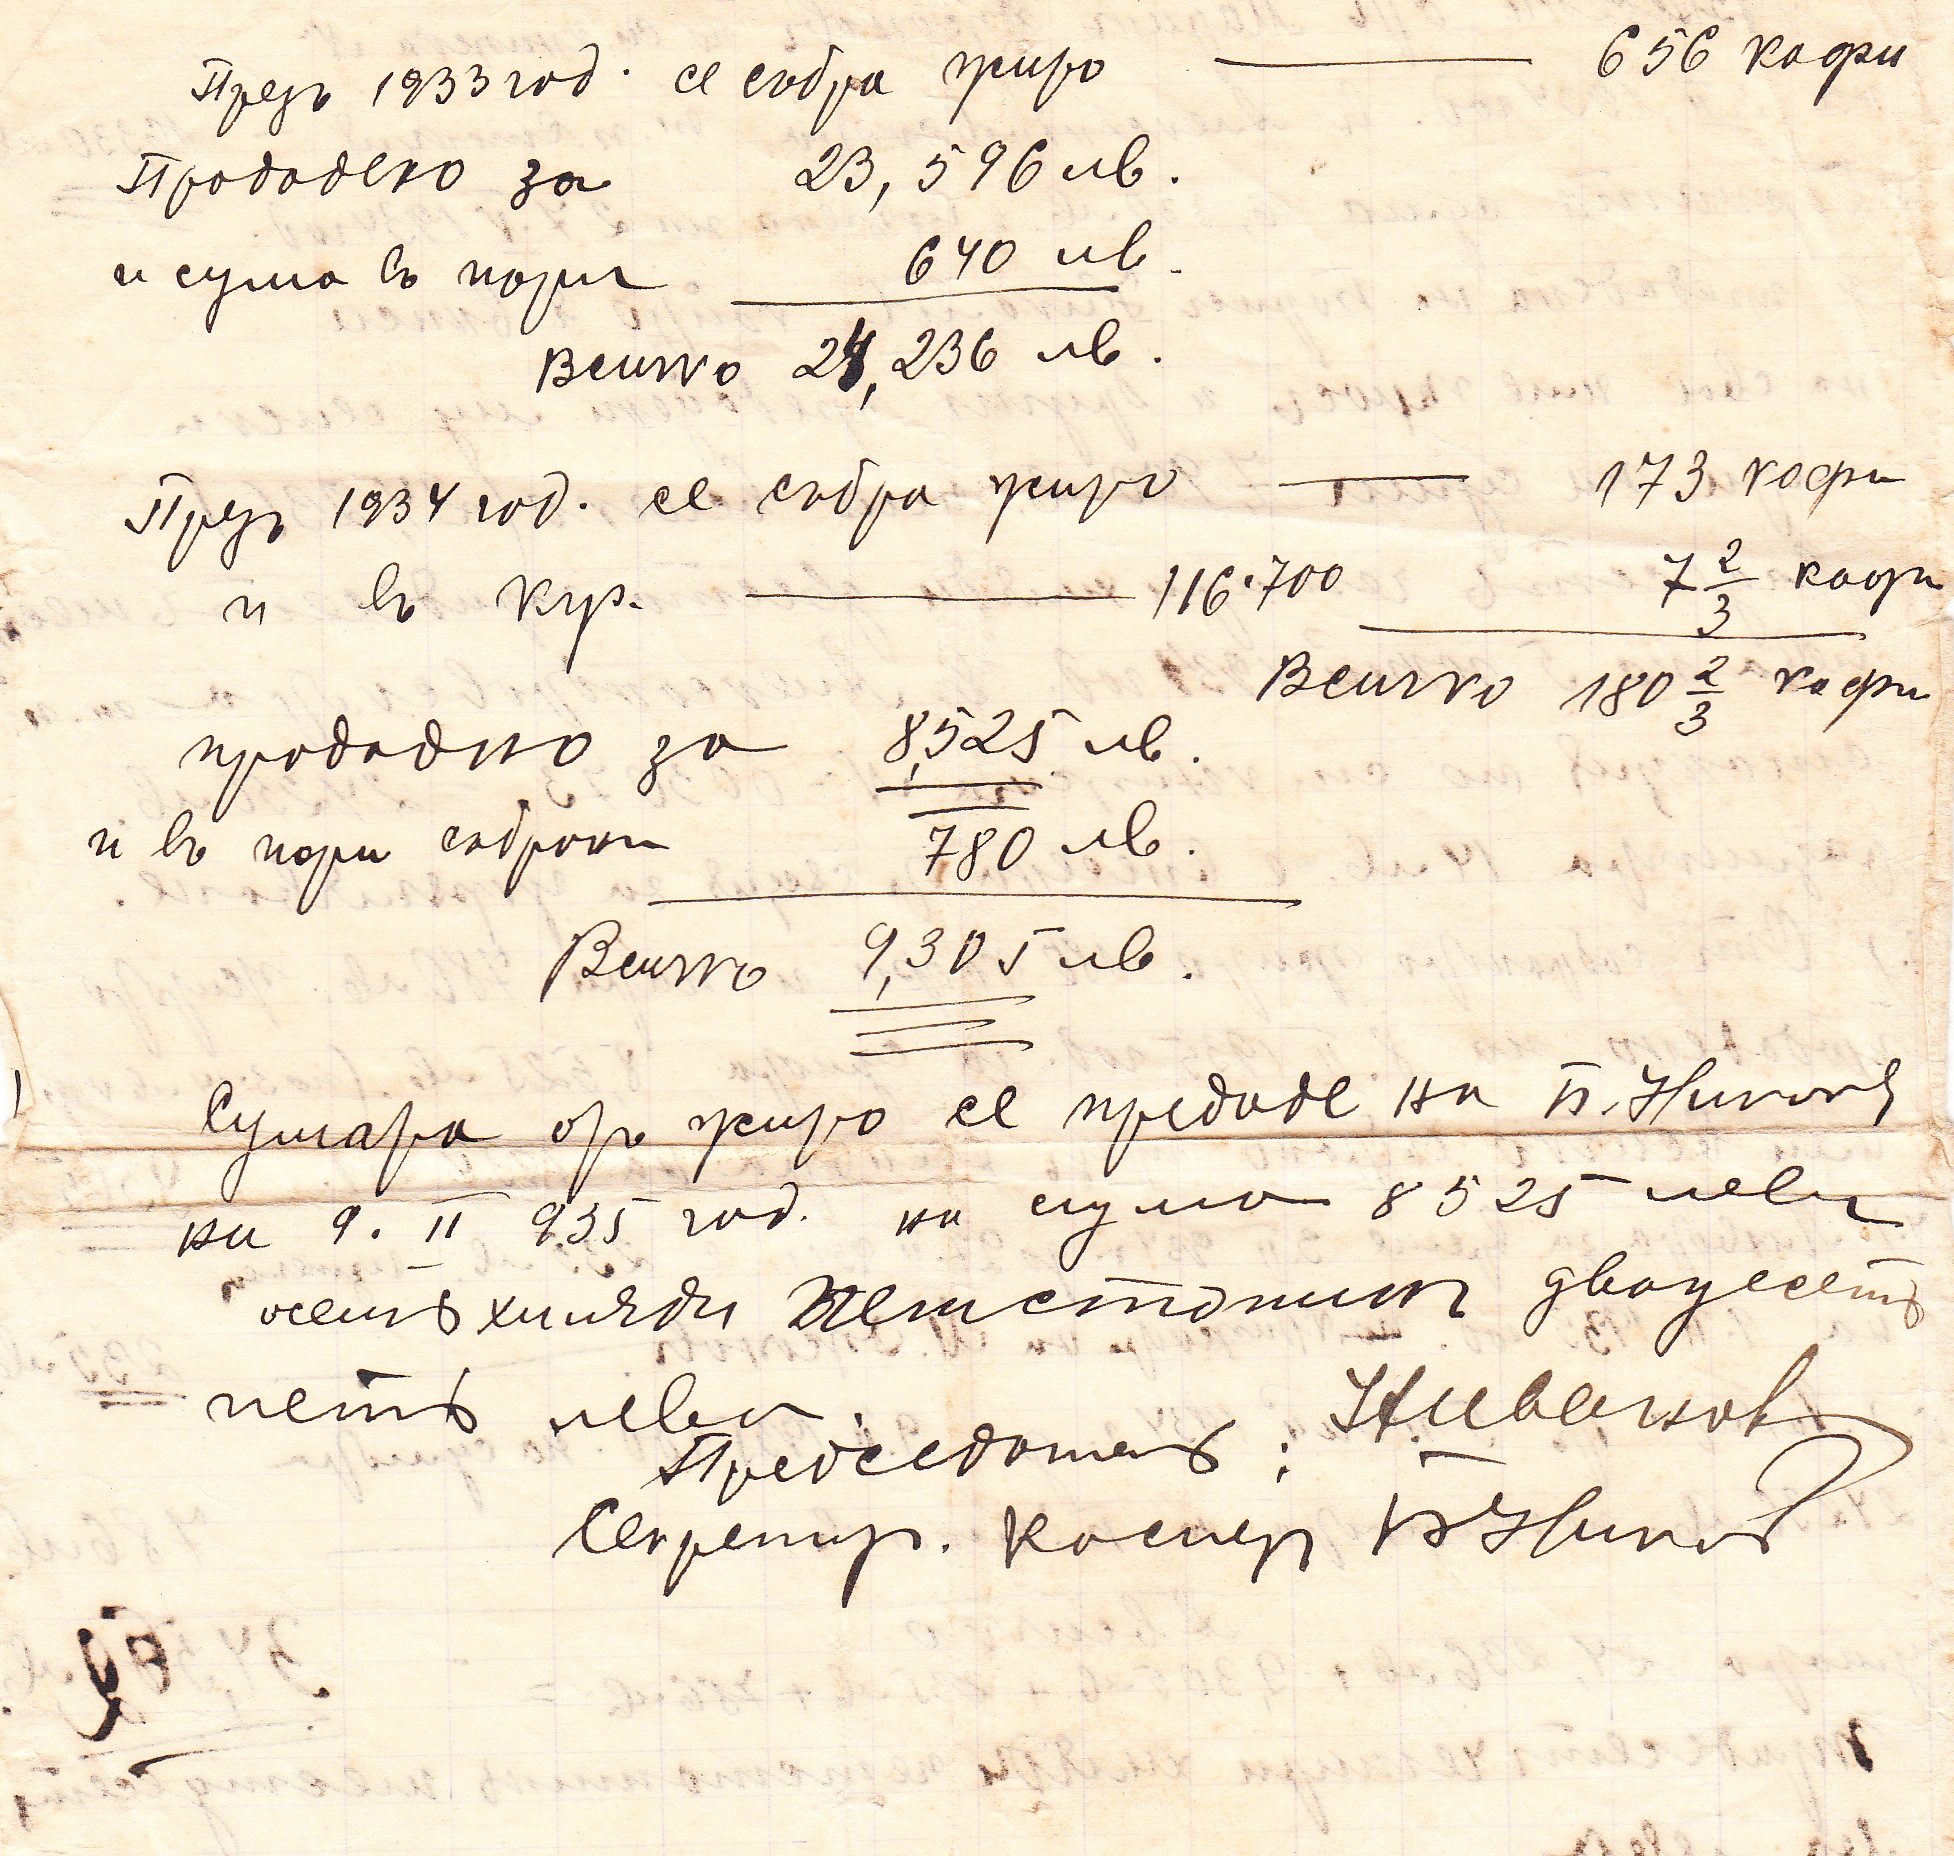 Презъ 1933 год. се събра жито — 656 кофи
Продадено за 23,596 лв.
и сума въ пари 640 лв.
Всичко 24,236 лв.
Презъ 1934 год. се събра жито — 173 кофи
и въ кгр. — 116.700 7 2/3 кофи
Всичко 180 2/3 кофи
продадено за 8,525 лв.
и въ пари събрани 780 лв.
Всичко 9,305 лв.
Сумата отъ жито се предаде на Б. Николов
на 9. II 935 год. на сума 8525 лева
осемь хиляди петстотин двадесеть
петь лева.
Председатель: Н. Иванов
Секретар. касиер БНиколов